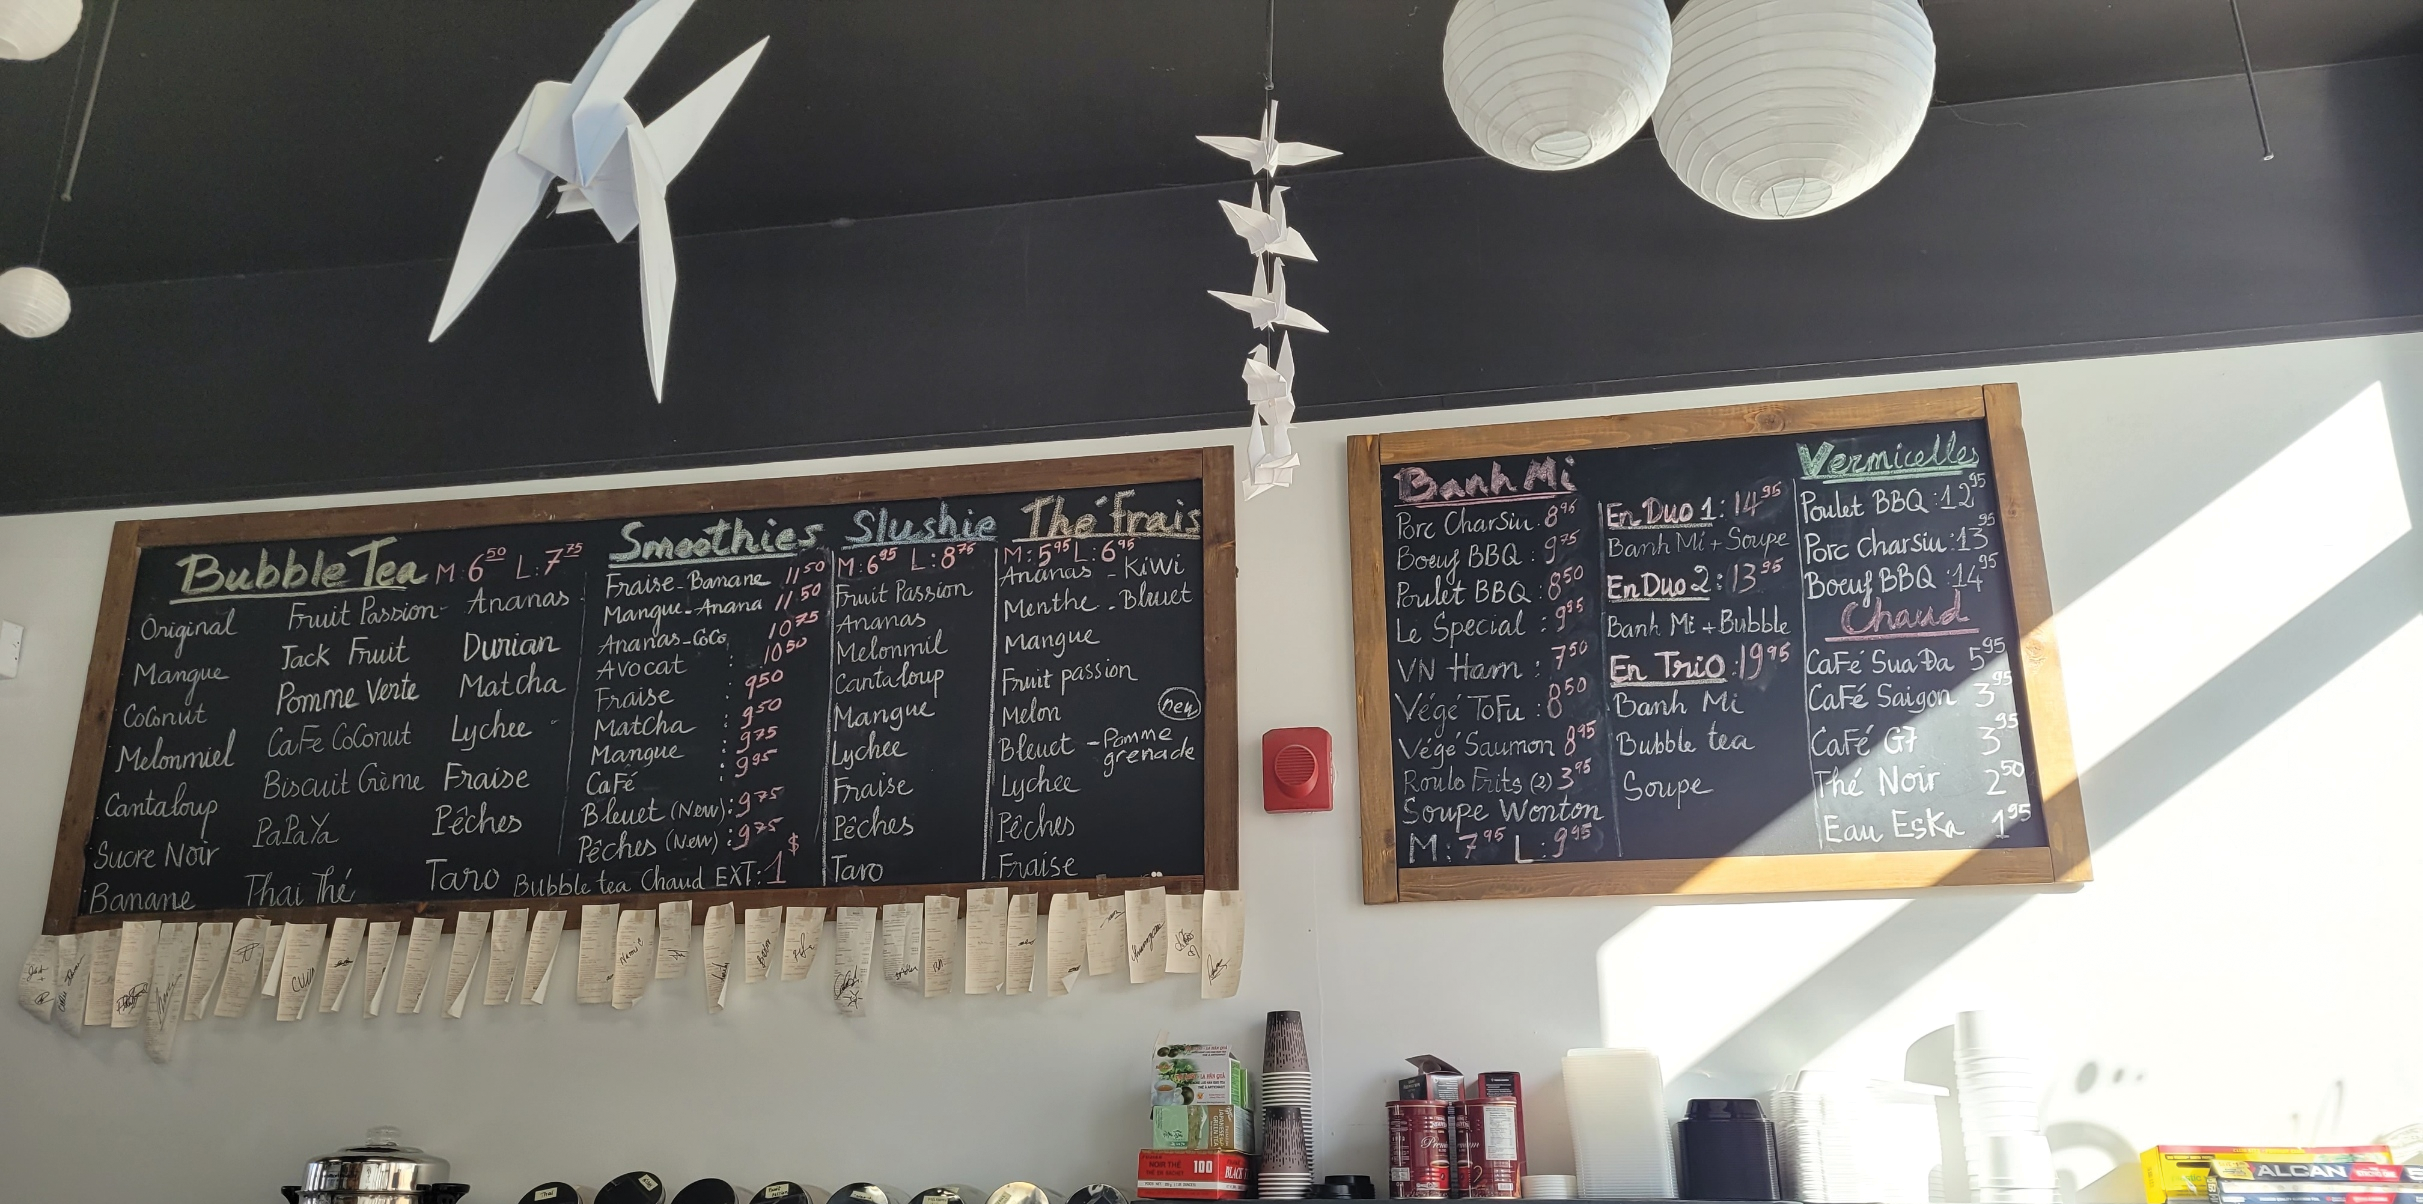 Bubble Tea M: 6.50 L: 7.75
Original
Mangue
Coconut
Melonmiel
Cantaloup
Sucre Noir
Banane
Fruit Passion
Jack Fruit
Pomme Verte
Café Coconut
Biscuit Crème
PaPaYa
Thai Thé
Ananas
Durian
Matcha
Lychee
Fraise
Pêches
Taro
Bubble tea Chaud EXT: 1$
Smoothies
Fraise-Banane 11.50
Mangue-Anana 11.50
Ananas-CoCo 10.75
Avocat : 10.50
Fraise : 9.50
Matcha : 9.50
Mangue : 9.75
CaFé : 9.95
Bleuet (New): 9.75
Pêches (New): 9.75
Slushie
M: 6.95 L: 8.75
Fruit Passion
Ananas
Melonmil
Cantaloup
Mangue
Lychee
Fraise
Pêches
Taro
Thé frais
M: 5.95 L: 6.95
Ananas - KiWi
Menthe - Bleuet
Mangue
Fruit passion
Melon
new
Bleuet - Pomme grenade
Lychee
Pêches
Fraise
Banh Mi
Porc Charsiu: 8.95
Boeuf BBQ : 9.75
Poulet BBQ : 8.50
Le Special : 9.95
VN Ham : 7.50
Végé ToFu : 8.50
Végé Saumon 8.95
Roulo Frits (2) 3.95
Soupe Wonton
M: 7.95 L: 9.95
En Duo 1: 14.95
Banh Mi + Soupe
En Duo 2: 13.95
Banh Mi + Bubble
En Trio: 19.95
Banh Mi
Bubble tea
Soupe
Vermicelles
Poulet BBQ : 12.95
Porc Charsiu: 13.95
Boeuf BBQ : 14.95
Chaud
CaFé Sua Đa 5.95
CaFé Saigon 3.95
CaFé G7 3.95
Thé Noir 2.50
Eau EsKa 1.95
NOIR THÉ
100
BLACK
ALCAN